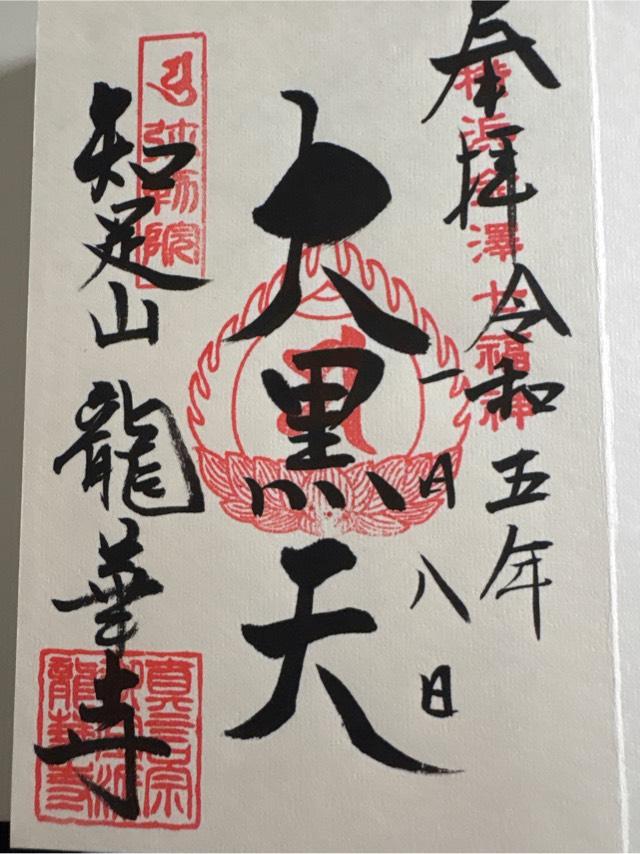 奉拝
横浜金澤七福神
令和五年
一月八日
大黒天
弥勒院
知足山
龍華寺
真言宗
御室派
龍華寺